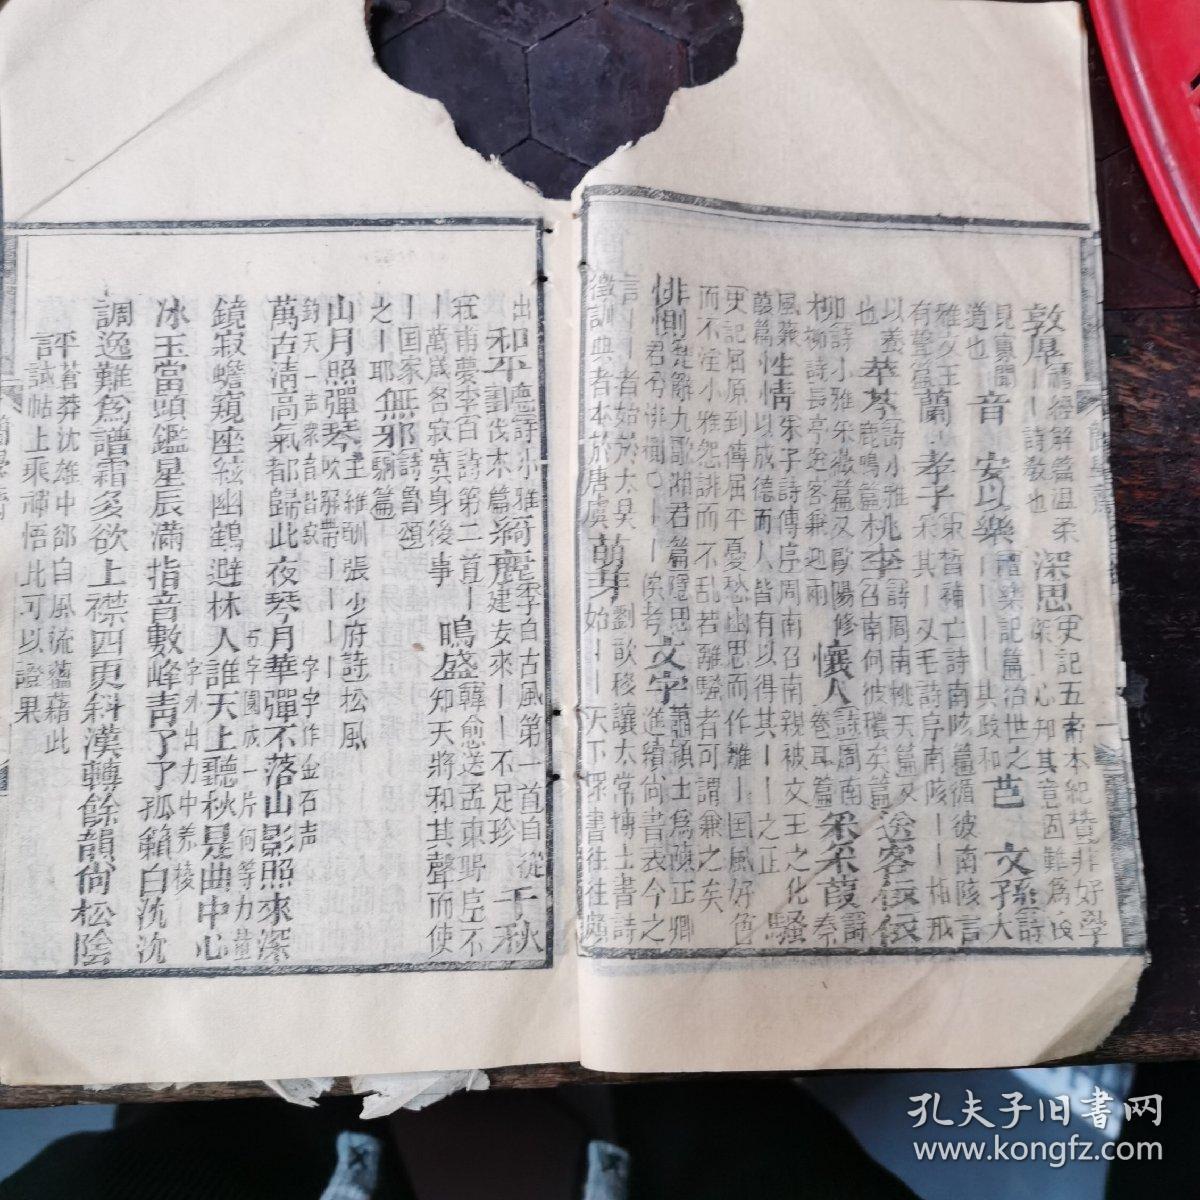 敦厚禮經解篇溫柔
丨丨詩教也
深思史記五帝本紀贊非好學
深丨心知其意固難為淺
見寡聞
道也
音 安以樂禮樂記篇治世之
丨丨丨丨其政和
芭 文孫詩大
雅文王
有聲篇
蘭 孝子束皙補亡詩南陔篇循彼南陔言
采其丨又毛詩序南陔丨丨相戒
以養
也
苹芩詩小雅
鹿鳴篇
桃李詩周南桃夭篇又
召南何彼穠矣篇
送客依依
詩小雅采薇篇又歐陽修
楊柳詩長亭送客兼迎雨
懷人詩周南
卷耳篇
采采葭詩
秦
風蒹
葭篇
性情朱子詩傳序周南召南親被文王之化
以成德而人皆有以得其丨丨之正
騷
史記屈原列傳屈平憂愁幽思而作離丨國風好色
而不淫小雅怨誹而不乱若離騷者可謂兼之矣
悱惻楚辭九歌湘君篇隱思
君兮悱惻
文字蕭穎士為陳正卿
進續尚書表今之
言丨丨者始於太昊
徵訓典者本於唐虞
萌芽劉歆移讓太常博士書詩
始丨丨天下眾書往往頗
出
和平豳詩小雅
伐木篇
綺麗李白古風第一首自從
建安來丨丨不足珍
千秋
杜甫夢李白詩第二首丨
丨萬歲名寂寞身後事
鳴盛韓愈送孟東野序不
知天將和其聲而使
丨國家
之丨耶
無邪詩魯頌
駉篇
山月照彈琴王維酬張少府詩松風
吹解帶丨丨丨丨丨
鈞天一声眾音皆寂
字字作金石声
萬古清高氣都歸此夜琴月華彈不落山影照來深
五字園成一片何等力量
字外出力中养稜
鏡寂蟾窺座絃幽鶴避林人誰天上聽秋是曲中心
冰玉當頭鑑星辰滿指音數峰青了了孤籟白沈沈
調逸難為譜霜多欲上襟四更斜漢轉餘韻尚松陰
評蒼莽沈雄中郤自風流蘊藉此
試帖上乘禪悟此可以證果
孔夫子旧书网
www.kongfz.com